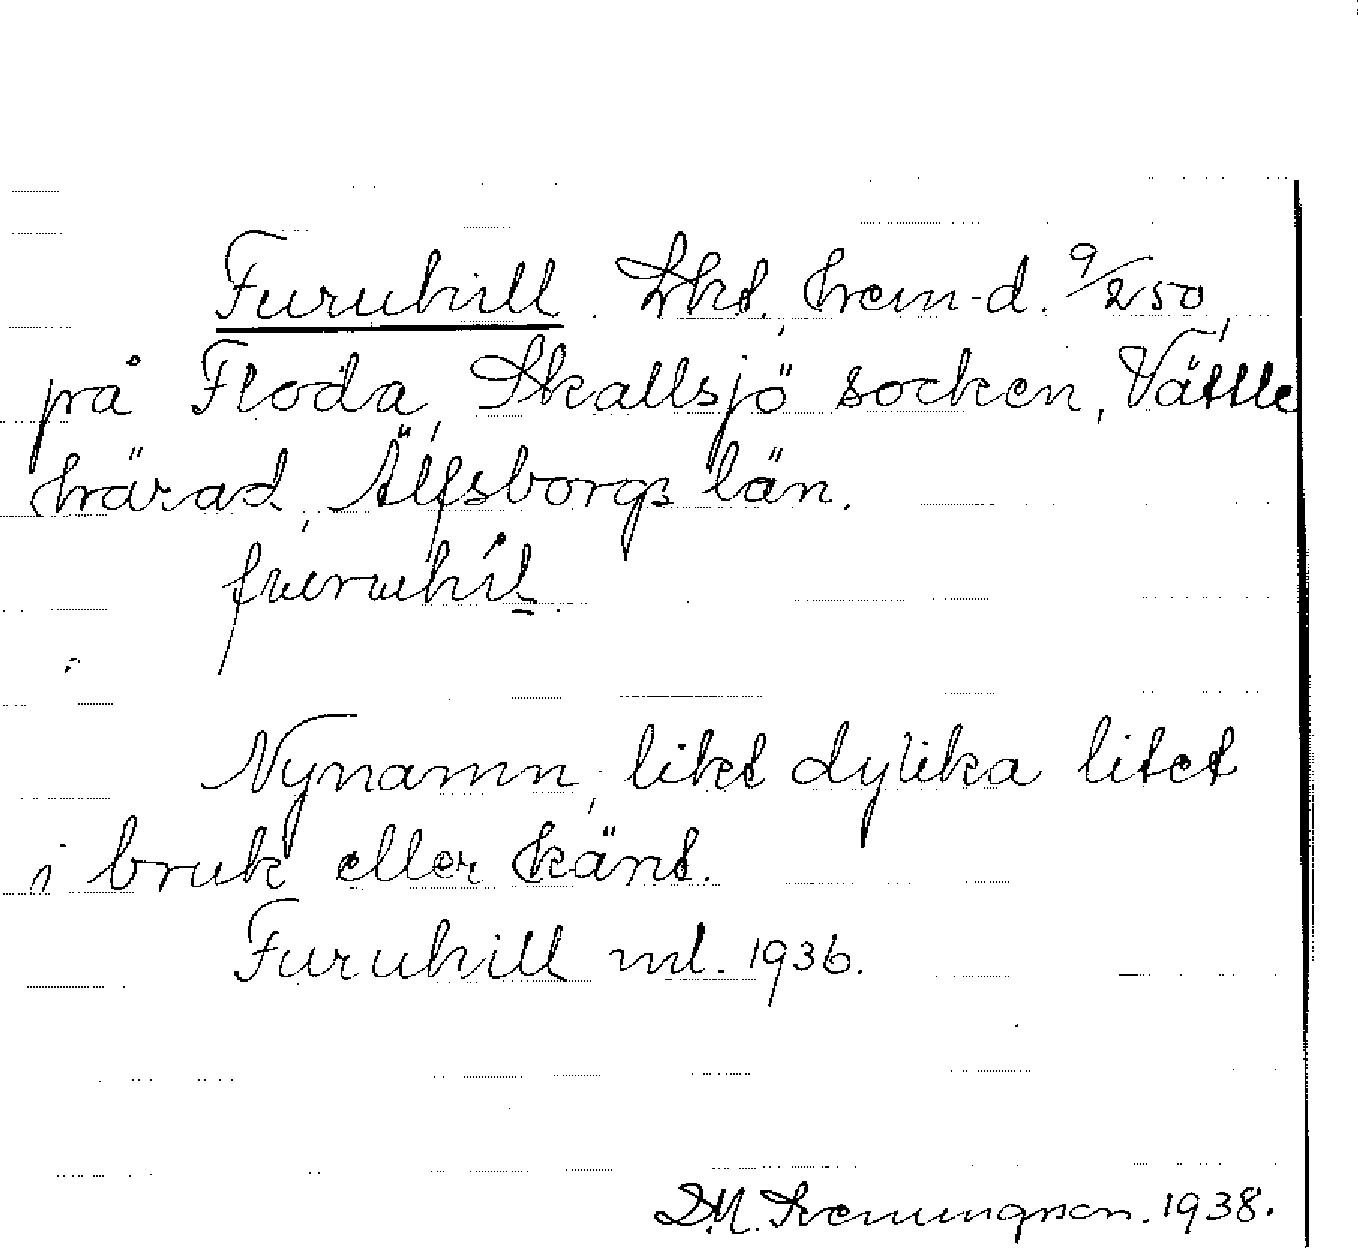 Furuhill. Lht, hem-d. 9/250,
på Floda, Skallsjö socken, Vättle
härad, Älfsborgs län.
furuhíl.
Nynamn, likt dylika litet
i bruk eller känt.
Furuhill ml. 1936.
D.M. Svenungson. 1938.